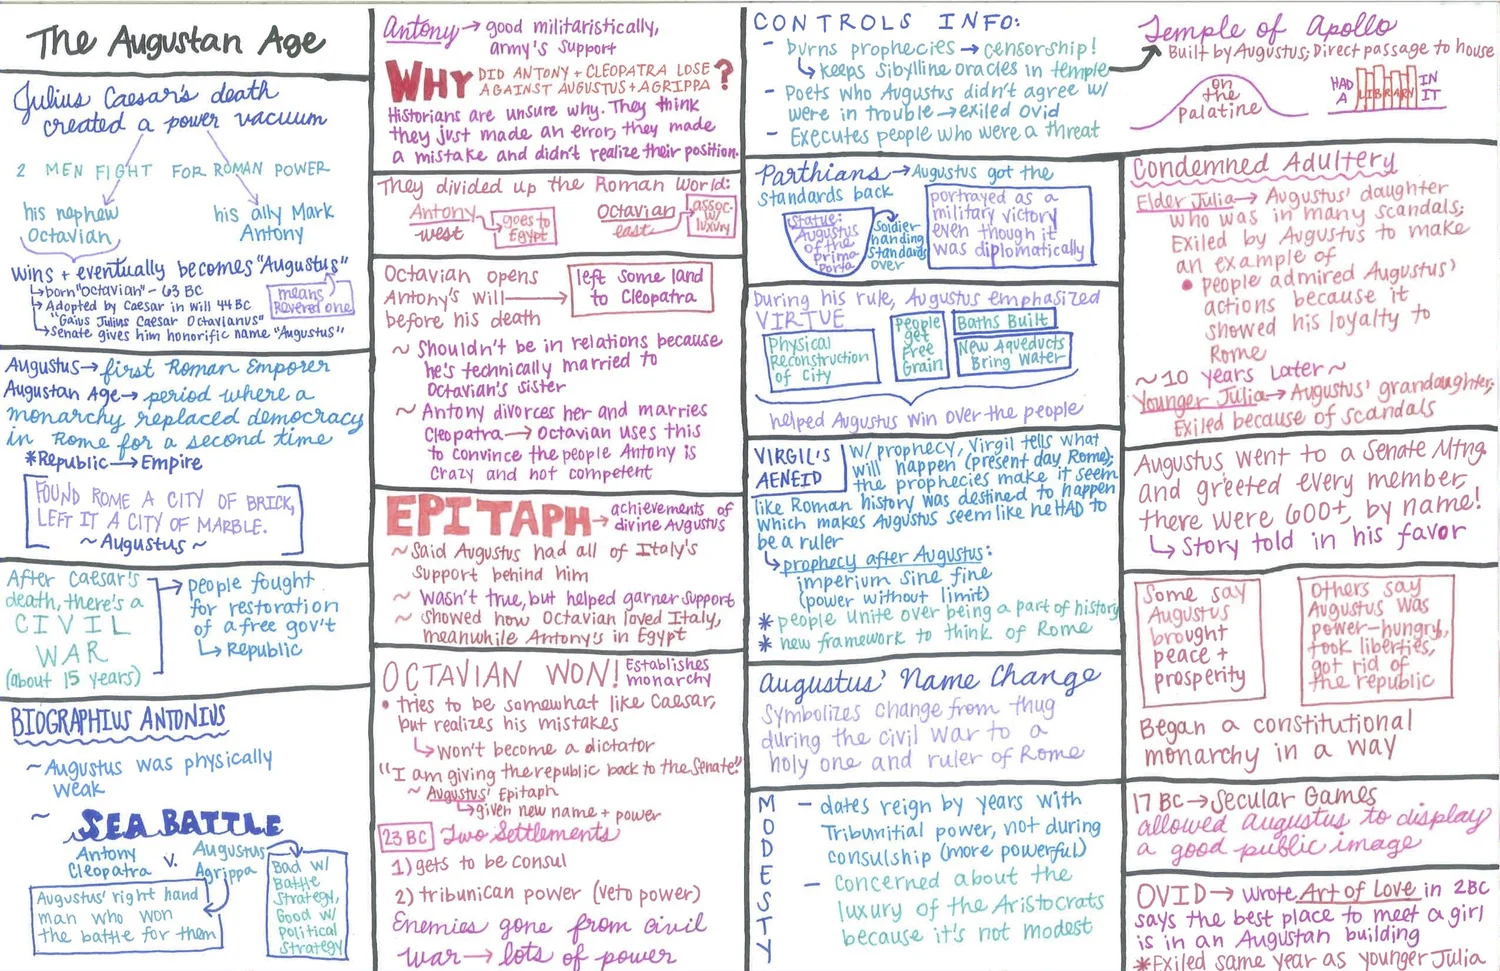 The Augustan Age
Julius Caesar's death
created a power vacuum
2 MEN FIGHT FOR ROMAN POWER
his nephew
Octavian
his ally Mark
Antony
wins + eventually becomes "Augustus"
↳born "Octavian" - 63 BC
↳Adopted by Caesar in will 44 BC
"Gaius Julius Caesar Octavianus"
↳Senate gives him honorific name "Augustus"
means
Revered one
Augustus→first Roman Emporer
Augustan Age→ period where a
monarchy replaced democracy
in Rome for a second time
*Republic→Empire
FOUND ROME A CITY OF BRICK,
LEFT IT A CITY OF MARBLE.
~ Augustus ~
After Caesar's
death, there's a
CIVIL
WAR
(about 15 years)
→people fought
for restoration
of a free gov't
↳ Republic
BIOGRAPHIUS ANTONIUS
~ Augustus was physically
weak
~ SEA BATTLE
Antony
Cleopatra
v.
Augustus
Agrippa
Augustus' right hand
man who won
the battle for them
Bad w/
Battle
Strategy,
Good w/
political
strategy
Antony→ good militaristically,
army's support
WHY DID ANTONY + CLEOPATRA LOSE
AGAINST AUGUSTUS + AGRIPPA ?
Historians are unsure why. They think
they just made an error, they made
a mistake and didn't realize their position.
They divided up the Roman World:
Antony
west
goes to
Egypt
Octavian
east
assoc.
w/
luxury
Octavian opens
Antony's will→
before his death
left some land
to Cleopatra
~ Shouldn't be in relations because
he's technically married to
Octavian's sister
~ Antony divorces her and marries
Cleopatra→ Octavian uses this
to convince the people Antony is
crazy and not competent
EPITAPH→ achievements of
divine Augustus
~ Said Augustus had all of Italy's
support behind him
~ wasn't true, but helped garner support
~ showed how Octavian loved Italy,
meanwhile Antony's in Egypt
OCTAVIAN WON! Establishes
monarchy
• tries to be somewhat like Caesar,
but realizes his mistakes
↳won't become a dictator
"I am giving the republic back to the Senate."
~ Augustus' Epitaph
↳given new name + power
23 BC Two Settlements
1) gets to be consul
2) tribunican power (veto power)
Enemies gone from civil
war→ lots of power
CONTROLS INFO:
- burns prophecies → censorship!
↳keeps Sibylline oracles in temple
- Poets who Augustus didn't agree w/
were in trouble→exiled Ovid
- Executes people who were a threat
Parthians→Augustus got the
standards back
Statue:
Augustus
of the
prima
porta
Soldier
handing
standards
over
portrayed as a
military victory
even though it
was diplomatically
During his rule, Augustus emphasized
VIRTUE
Physical
Reconstruction
of City
People
get
Free
Grain
Baths Built
New Aqueducts
Bring Water
helped Augustus win over the people
VIRGIL'S
AENEID
w/ prophecy, Virgil tells what
will happen (present day Rome);
the prophecies make it seem
like Roman history was destined to happen
which makes Augustus seem like he HAD to
be a ruler
↳prophecy after Augustus:
imperium sine fine
(power without limit)
* people unite over being a part of history
* new framework to think of Rome
Augustus' Name Change
Symbolizes change from thug
during the civil war to a
holy one and ruler of Rome
MODESTY
- dates reign by years with
Tribunitial power, not during
consulship (more powerful)
- Concerned about the
luxury of the Aristocrats
because it's not modest
Temple of Apollo
Built by Augustus; Direct passage to house
on
the
Palatine
HAD
A
LIBRARY
IN
IT
Condemned Adultery
Elder Julia→ Augustus' daughter
who was in many scandals;
Exiled by Augustus to make
an example of
• people admired Augustus'
actions because it
showed his loyalty to
Rome
~10 years Later~
Younger Julia→ Augustus' grandaughter;
Exiled because of scandals
Augustus went to a Senate Mtng.
and greeted every member,
there were 600+, by name!
↳ Story told in his favor
Some say
Augustus
brought
peace +
prosperity
Others say
Augustus was
power-hungry,
took liberties,
got rid of
the republic
Began a constitutional
monarchy in a way
17 BC→ Secular Games
allowed Augustus to display
a good public image
OVID→ wrote Art of Love in 2BC
says the best place to meet a girl
is in an Augustan building
*Exiled same year as younger Julia